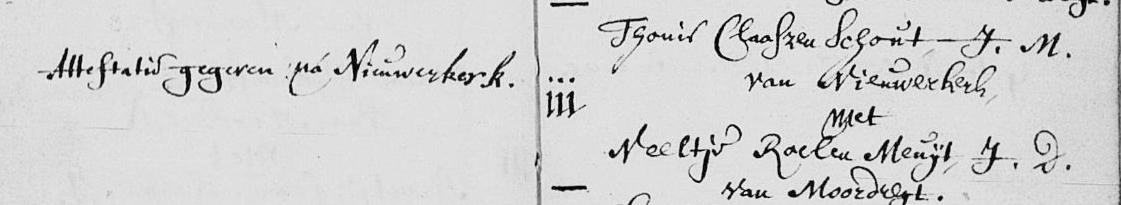 Attestatie gegeven na Nieuwerkerk.
iii
Thonis Claaszen Schout J. M.
van Nieuwerkerk
met
Neeltje Roelen Meuyt, J. D.
van Moordregt.